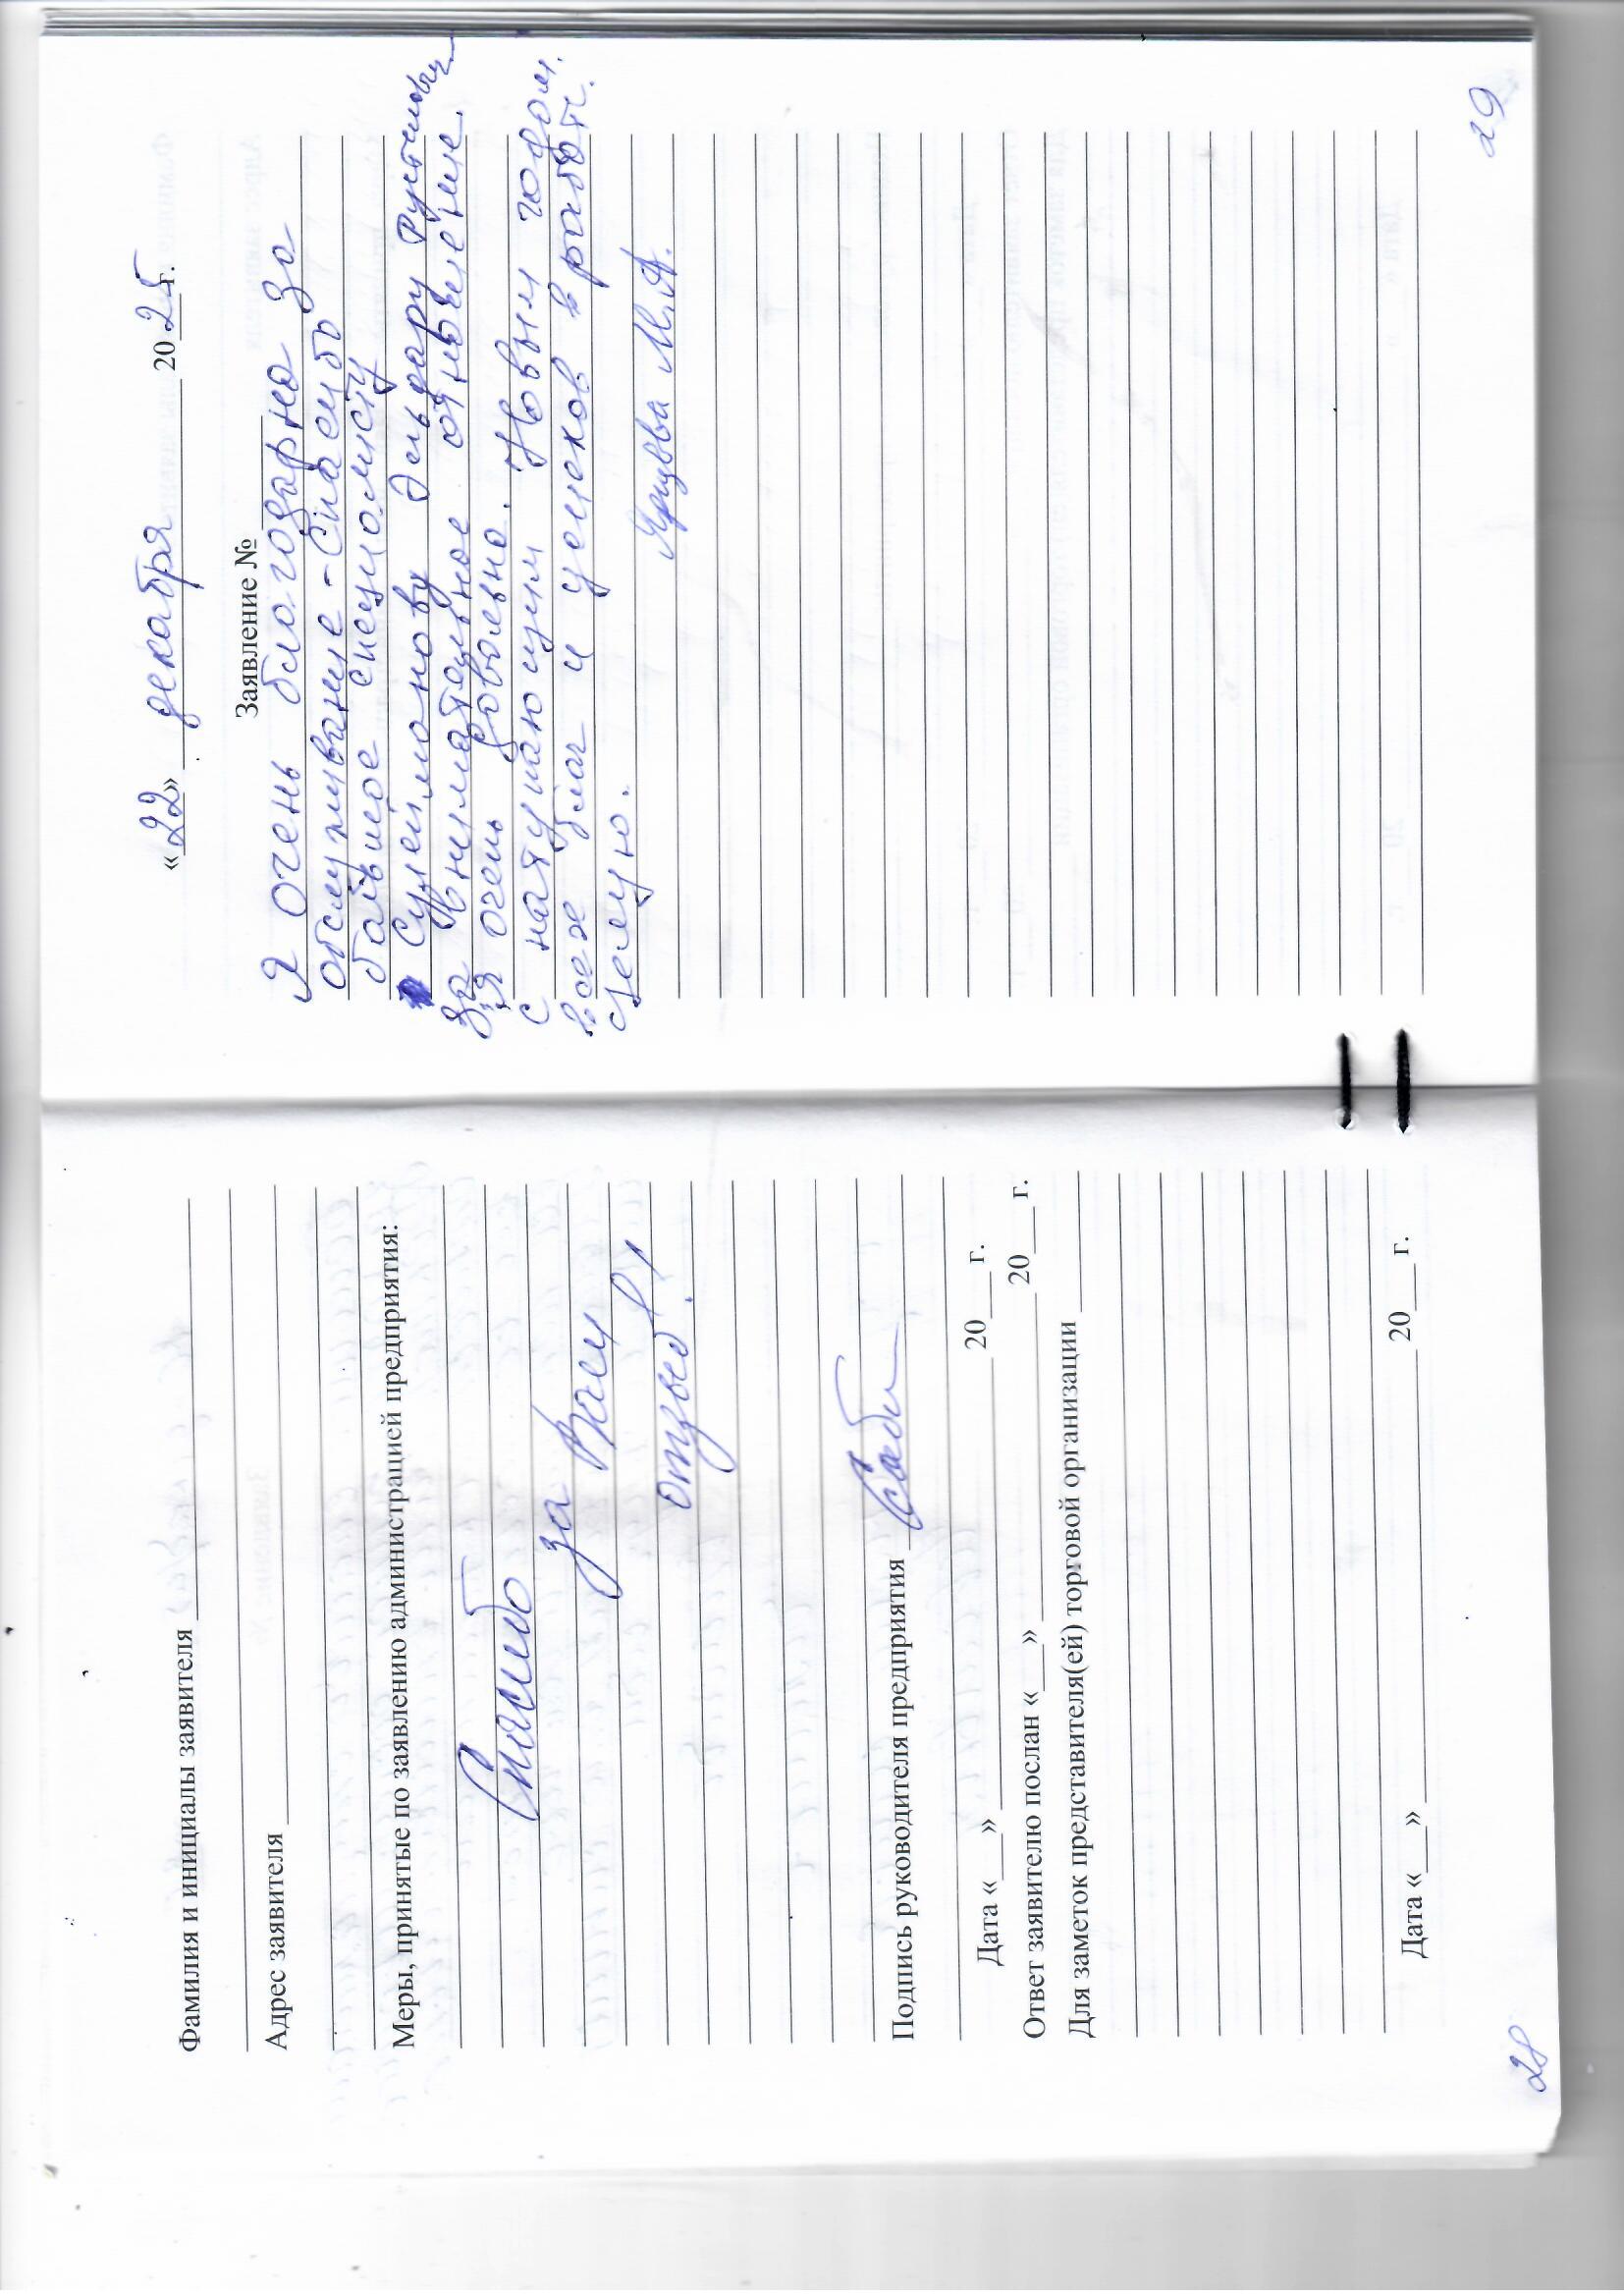 Фамилия и инициалы заявителя
Адрес заявителя
Меры, принятые по заявлению администрацией предприятия:
Спасибо
за Ваш
отзыв!
Подпись руководителя предприятия
Дата «___» ___ 20___ г.
Ответ заявителю послан «___» ___ 20___ г.
Для заметок представителя(ей) торговой организации
Дата «___» ___ 20___ г.
28
«22» декабря 2025 г.
Заявление №
Я очень благодарна за
обслуживание - Спасибо
большое специалисту
Сулейманову Эльдару
за внимательное отношение.
я очень довольна.
С наступающим Новым годом.
всех благ и успехов в работе.
целую.
М.А.
29